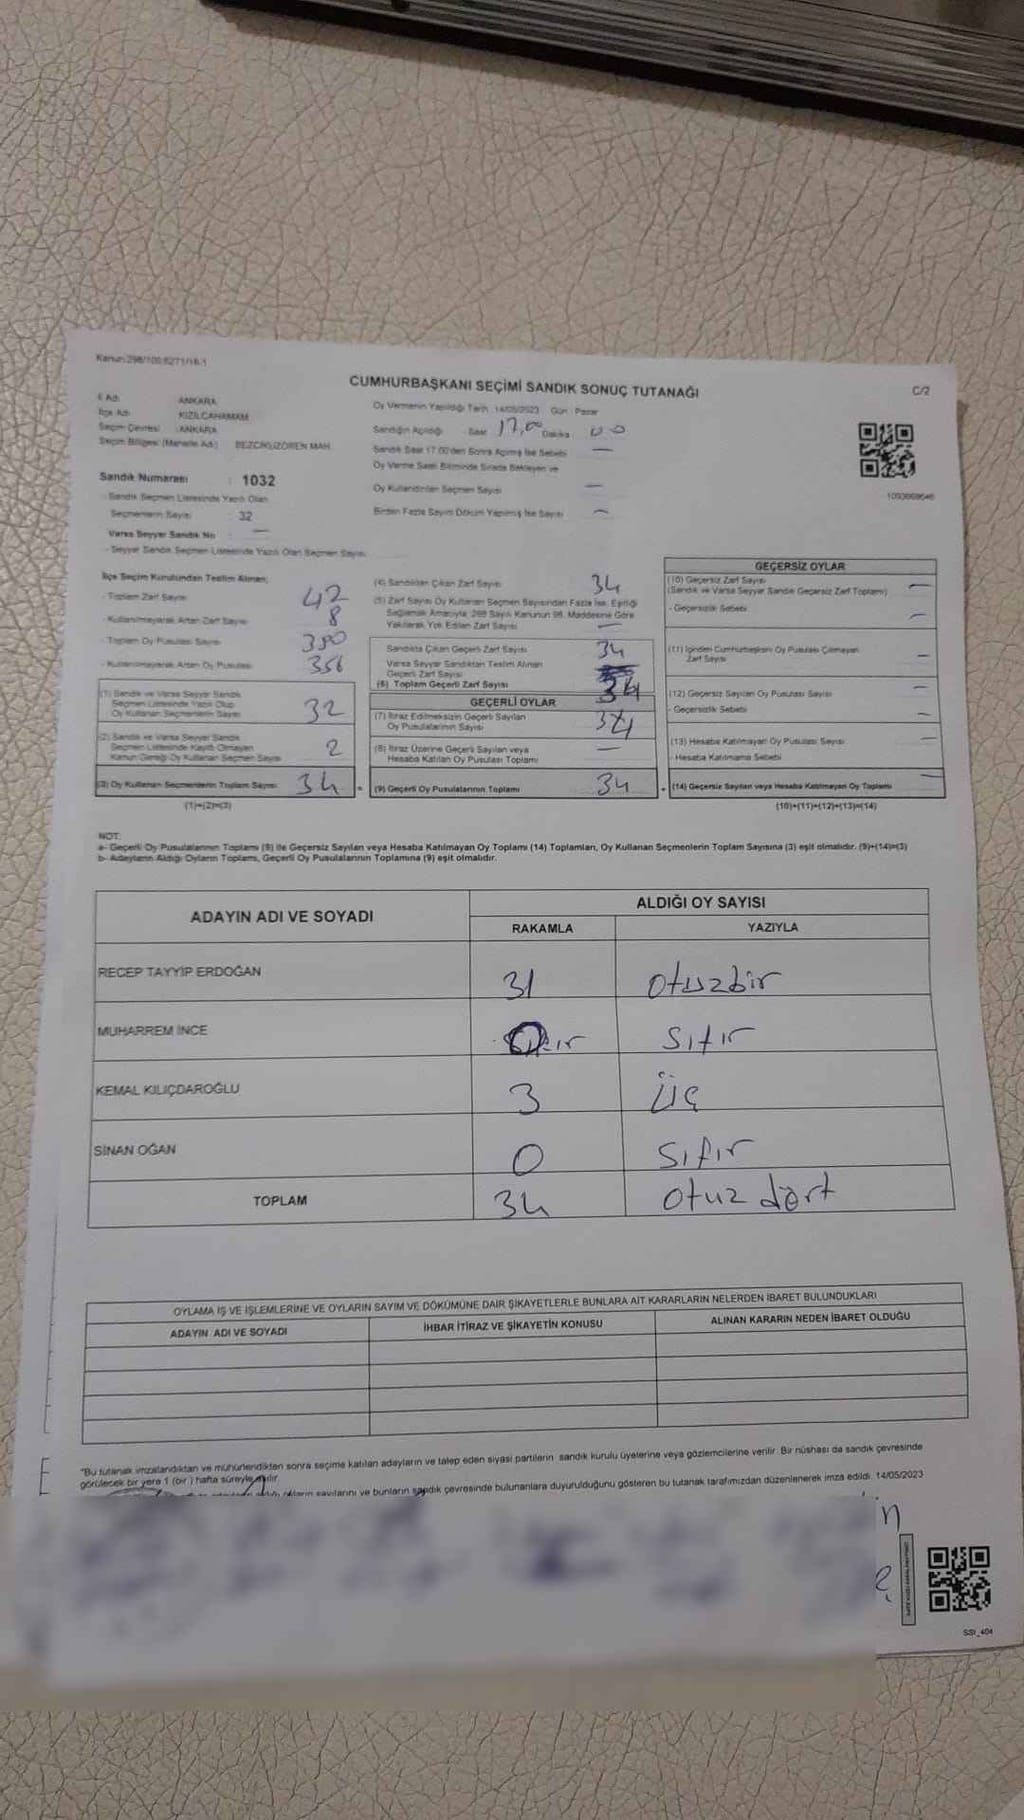 Kanun:298/100,6271/18-1
CUMHURBAŞKANI SEÇİMİ SANDIK SONUÇ TUTANAĞI
C/2
İl Adı : ANKARA
İlçe Adı : KIZILCAHAMAM
Seçim Çevresi : ANKARA
Seçim Bölgesi (Mahalle Adı) : BEZCİKUZÖREN MAH.
Oy Vermenin Yapıldığı Tarih : 14/05/2023 Gün : Pazar
Sandığın Açıldığı Saat 17,00 Dakika 00
Sandık Saat 17.00'den Sonra Açılmış İse Sebebi —
Oy Verme Saati Bitiminde Sırada Bekleyen ve
Oy Kullandırılan Seçmen Sayısı —
Birden Fazla Sayım Döküm Yapılmış İse Sayısı —
Sandık Numarası : 1032
- Sandık Seçmen Listesinde Yazılı Olan
Seçmenlerin Sayısı : 32
Varsa Seyyar Sandık No —
- Seyyar Sandık Seçmen Listesinde Yazılı Olan Seçmen Sayısı
İlçe Seçim Kurulundan Teslim Alınan;
- Toplam Zarf Sayısı 42
- Kullanılmayarak Artan Zarf Sayısı 8
- Toplam Oy Pusulası Sayısı 390
- Kullanılmayarak Artan Oy Pusulası 356
(1) Sandık ve Varsa Seyyar Sandık
Seçmen Listesinde Yazılı Olup
Oy Kullanan Seçmenlerin Sayısı 32
(2) Sandık ve Varsa Seyyar Sandık
Seçmen Listesinde Kayıtlı Olmayan
Kanun Gereği Oy Kullanan Seçmen Sayısı 2
(3) Oy Kullanan Seçmenlerin Toplam Sayısı 34
(1)+(2)=(3)
(4) Sandıktan Çıkan Zarf Sayısı 34
(5) Zarf Sayısı Oy Kullanan Seçmen Sayısından Fazla İse, Eşitliği
Sağlamak Amacıyla, 298 Sayılı Kanunun 98. Maddesine Göre
Yakılarak Yok Edilen Zarf Sayısı —
Sandıkta Çıkan Geçerli Zarf Sayısı 34
Varsa Seyyar Sandıktan Teslim Alınan
Geçerli Zarf Sayısı
(6) Toplam Geçerli Zarf Sayısı 34
GEÇERLİ OYLAR
(7) İtiraz Edilmeksizin Geçerli Sayılan
Oy Pusulalarının Sayısı 34
(8) İtiraz Üzerine Geçerli Sayılan veya
Hesaba Katılan Oy Pusulası Toplamı —
(9) Geçerli Oy Pusulalarının Toplamı 34
GEÇERSİZ OYLAR
(10) Geçersiz Zarf Sayısı
(Sandık ve Varsa Seyyar Sandık Geçersiz Zarf Toplamı) —
- Geçersizlik Sebebi —
(11) İçinden Cumhurbaşkanı Oy Pusulası Çıkmayan
Zarf Sayısı —
(12) Geçersiz Sayılan Oy Pusulası Sayısı —
- Geçersizlik Sebebi —
(13) Hesaba Katılmayan Oy Pusulası Sayısı —
- Hesaba Katılmama Sebebi
(14) Geçersiz Sayılan veya Hesaba Katılmayan Oy Toplamı —
(10)+(11)+(12)+(13)=(14)
NOT:
a- Geçerli Oy Pusulalarının Toplamı (9) ile Geçersiz Sayılan veya Hesaba Katılmayan Oy Toplamı (14) Toplamları, Oy Kullanan Seçmenlerin Toplam Sayısına (3) eşit olmalıdır. (9)+(14)=(3)
b- Adayların Aldığı Oyların Toplamı, Geçerli Oy Pusulalarının Toplamına (9) eşit olmalıdır.
ADAYIN ADI VE SOYADI
ALDIĞI OY SAYISI
RAKAMLA YAZIYLA
RECEP TAYYİP ERDOĞAN 31 otuzbir
MUHARREM İNCE 0 sıfır
KEMAL KILIÇDAROĞLU 3 üç
SİNAN OĞAN 0 sıfır
TOPLAM 34 otuz dört
OYLAMA İŞ VE İŞLEMLERİNE VE OYLARIN SAYIM VE DÖKÜMÜNE DAİR ŞİKAYETLERLE BUNLARA AİT KARARLARIN NELERDEN İBARET BULUNDUKLARI
ADAYIN ADI VE SOYADI İHBAR İTİRAZ VE ŞİKAYETİN KONUSU ALINAN KARARIN NEDEN İBARET OLDUĞU
"Bu tutanak imzalandıktan ve mühürlendikten sonra seçime katılan adayların ve talep eden siyasi partilerin sandık kurulu üyelerine veya gözlemcilerine verilir. Bir nüshası da sandık çevresinde
görülecek bir yere 1 (bir ) hafta süreyle asılır.
oyların sayılarını ve bunların sandık çevresinde bulunanlara duyurulduğunu gösteren bu tutanak tarafımızdan düzenlenerek imza edildi. 14/05/2023
SSI_404